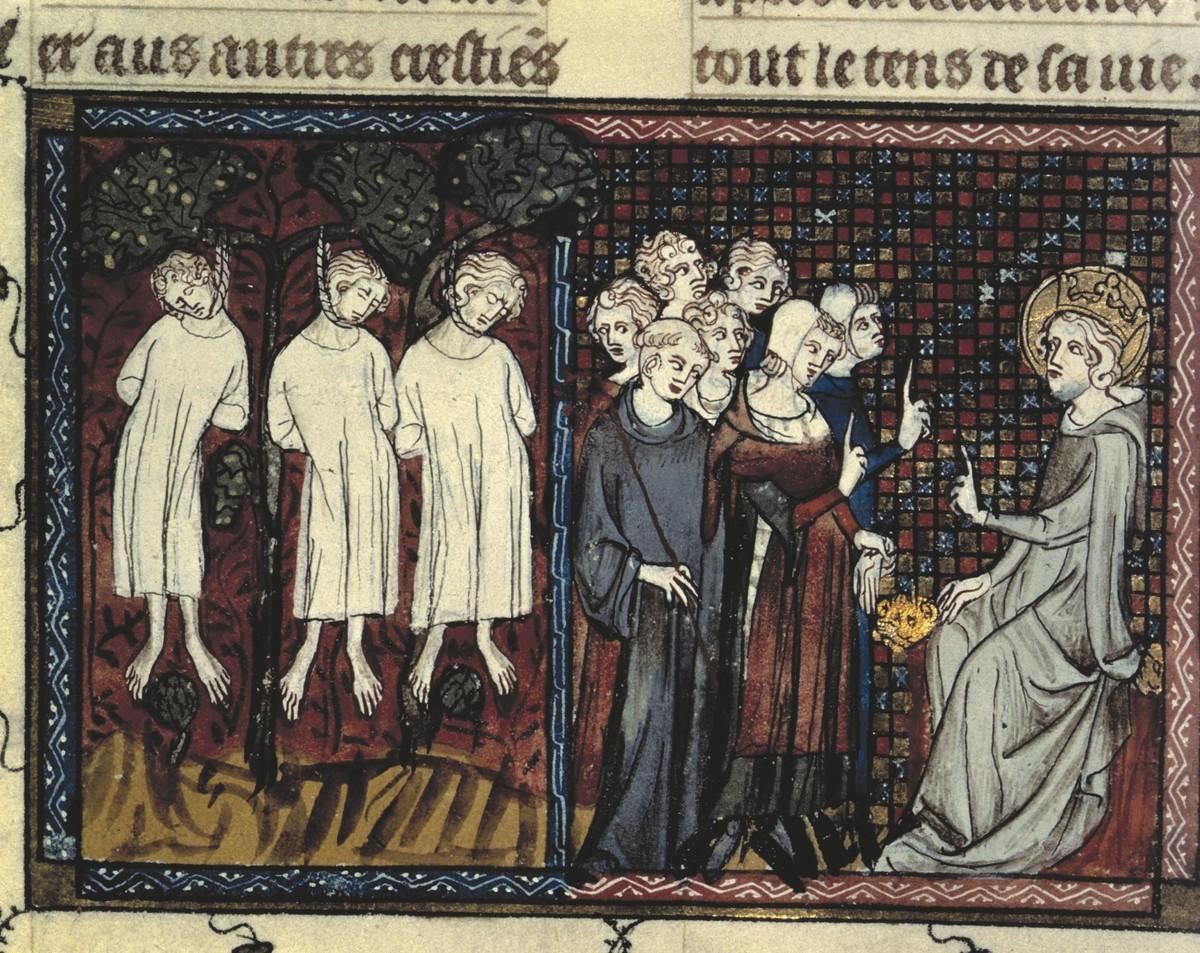 er aus autres crestiēs
tout le tens de sa vie.